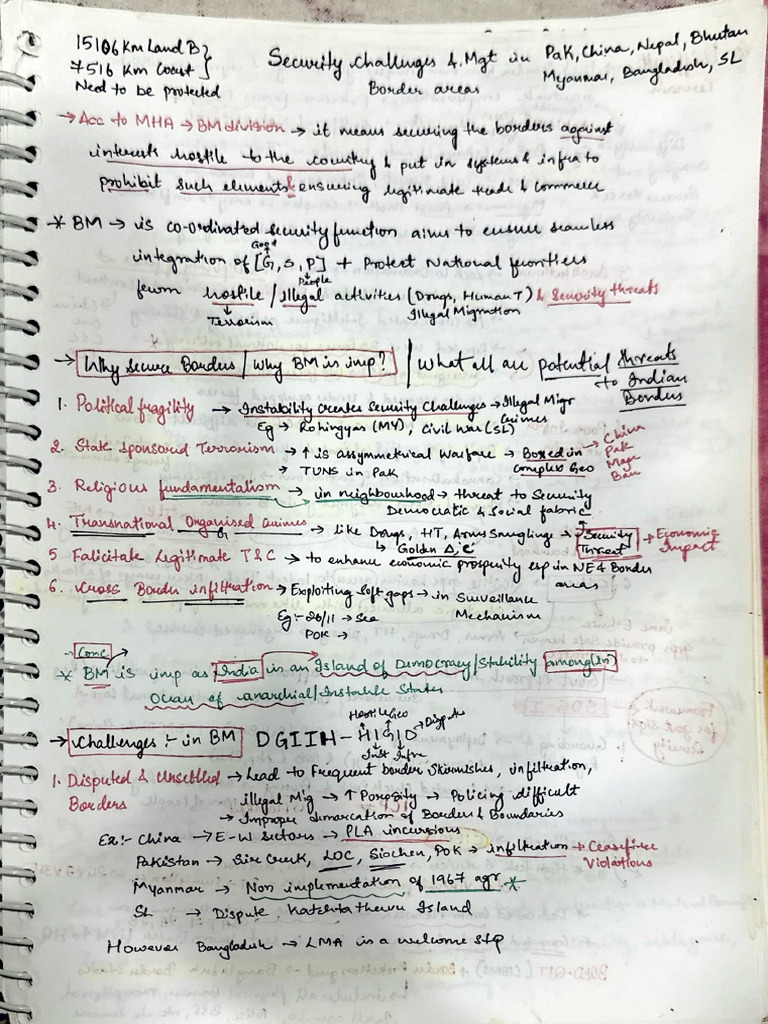 15106 Km Land B
7516 Km Coast
Need to be protected
Security Challenges & Mgt in
Border areas
Pak, China, Nepal, Bhutan
Myanmar, Bangladesh, SL
→ Acc to MHA → BM division → it means securing the borders against
interests hostile to the country & put in systems & infra to
prohibit such elements & ensuring legitimate trade & commerce
* BM → is co-ordinated security function aims to ensure seamless
integration of [G, S, P] + Protect National frontiers
Govt
People
from hostile / illegal activities (Drugs, Human T) & Security threats
Terrorism
Illegal Migration
→ Why Secure Borders / Why BM is imp? / What all are potential threats
to Indian
Borders
1. Political fragility → Instability creates Security Challenges → Illegal Migr
Crimes
Eg → Rohingyas (MY), Civil War (SL)
2. State Sponsored Terrorism → ↑ is assymmetrical warfare → Boxed in
complex Geo
→ China
Pak
→ TUNS in Pak
3. Religious fundamentalism → in neighbourhood → threat to Security
Democratic & Social fabric
4. Transnational Organised Crimes → like Drugs, HT, Arms Smuglings → Security
Threat
→ Economic
Impact
Golden Δ,
5 Falicitate Legitimate T&C → to enhance economic prosperity esp in NE & Border
areas
6. Cross Border infiltration → Exploiting Soft gaps → in Surveillance
Mechanism
Eg :- 26/11 → Sea
POK →
Conc
* BM is imp as India is an Island of Democracy / Stability among(in)
Ocean of anarchial / Instable States
→ Challenges :- in BM
DGIIH - HIGID
Hostile Geo
Dispute
Inst Infra
1. Disputed & Unsettled
Borders
→ Lead to Frequent border Skirmishes, infiltration,
illegal Mig → ↑ Porosity → Policing difficult
→ Improper dimarcation of Borders & Boundaries
Ex:- China → E-W Sectors → PLA incursions
Pakistan → Sir Creek, LOC, Siachen, POK → infiltration → Ceasefire
Violations
Myanmar → Non implementation of 1967 agr *
SL → Dispute Katchtathevu Island
However Bangladesh → LMA is a welcome stp